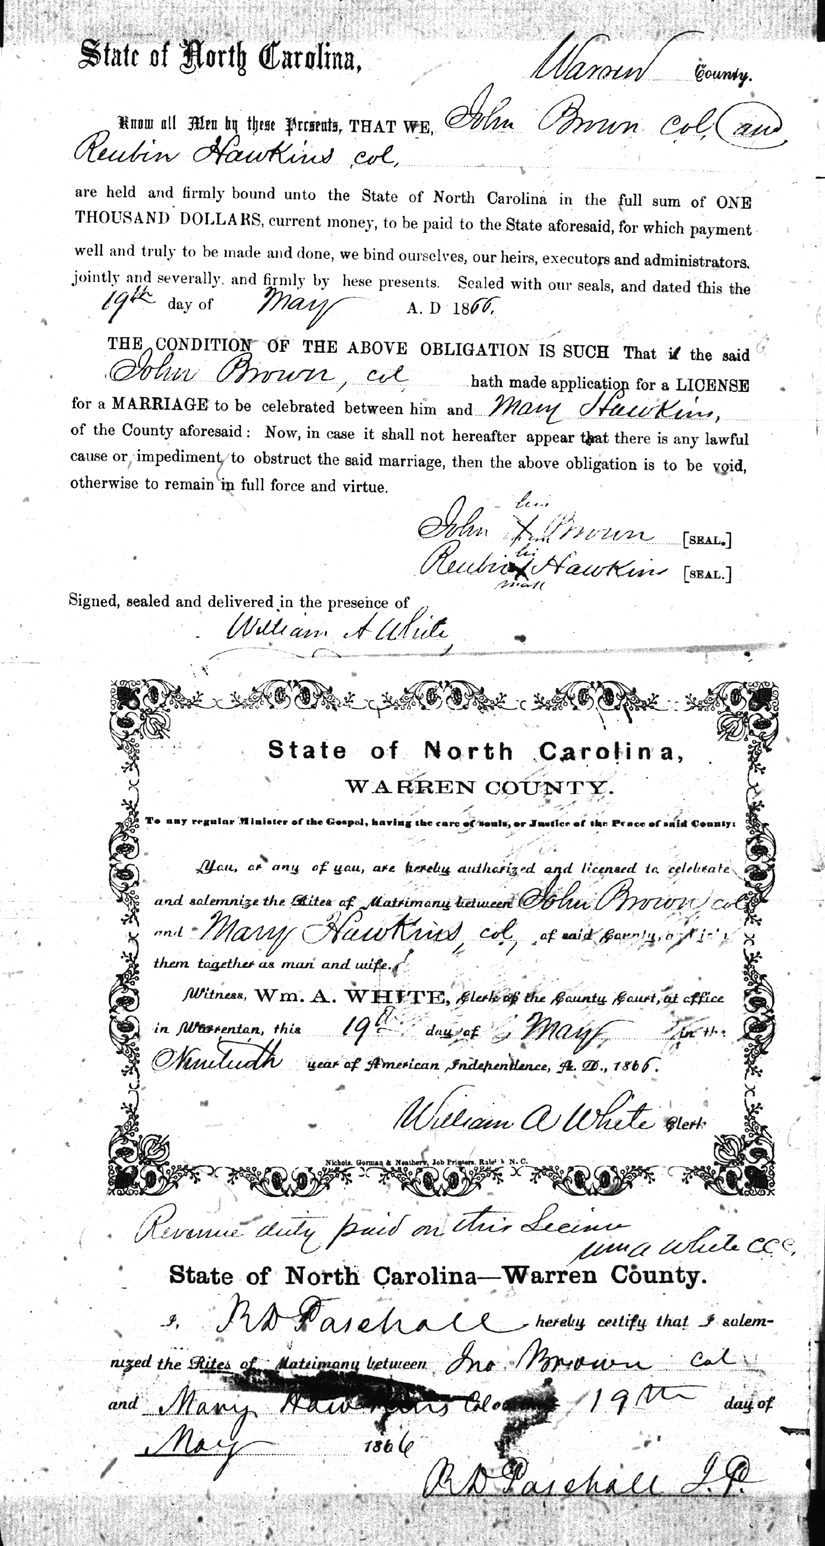 State of North Carolina,
Warren County.
Know all Men by these Presents, THAT WE, John Brown col, and
Reubin Hawkins col,
are held and firmly bound unto the State of North Carolina in the full sum of ONE
THOUSAND DOLLARS, current money, to be paid to the State aforesaid, for which payment
well and truly to be made and done, we bind ourselves, our heirs, executors and administrators,
jointly and severally, and firmly by hese presents. Sealed with our seals, and dated this the
19th day of May A. D 1866.
THE CONDITION OF THE ABOVE OBLIGATION IS SUCH That if the said
John Brown, col hath made application for a LICENSE
for a MARRIAGE to be celebrated between him and Mary Hawkins,
of the County aforesaid: Now, in case it shall not hereafter appear that there is any lawful
cause or impediment to obstruct the said marriage, then the above obligation is to be void,
otherwise to remain in full force and virtue.
his
John X Brown [SEAL.]
his
Reubin X Hawkins [SEAL.]
mark
Signed, sealed and delivered in the presence of
William A White,
State of North Carolina,
WARREN COUNTY.
To any regular Minister of the Gospel, having the care of souls, or Justice of the Peace of said County:
You, or any of you, are hereby authorized and licensed to celebrate
and solemnize the Rites of Matrimony between John Brown col
and Mary Hawkins, col, of said County,
them together as man and wife.
Witness, Wm. A. WHITE, Clerk of the County Court, at office
in Warrenton, this 19th day of May in the
Ninetieth year of American Independence, A. D., 1866.
William A White Clerk
Nichols, Gorman & Neathery, Job Printers, Raleigh N. C.
Revenue duty paid on this License
Wm A White CCC,
State of North Carolina—Warren County.
I, R D Paschall hereby certify that I solem-
nized the Rites of Matrimony between Jno Brown col
and Mary Hawkins Col 19th day of
May 1866
R D Paschall J. P.